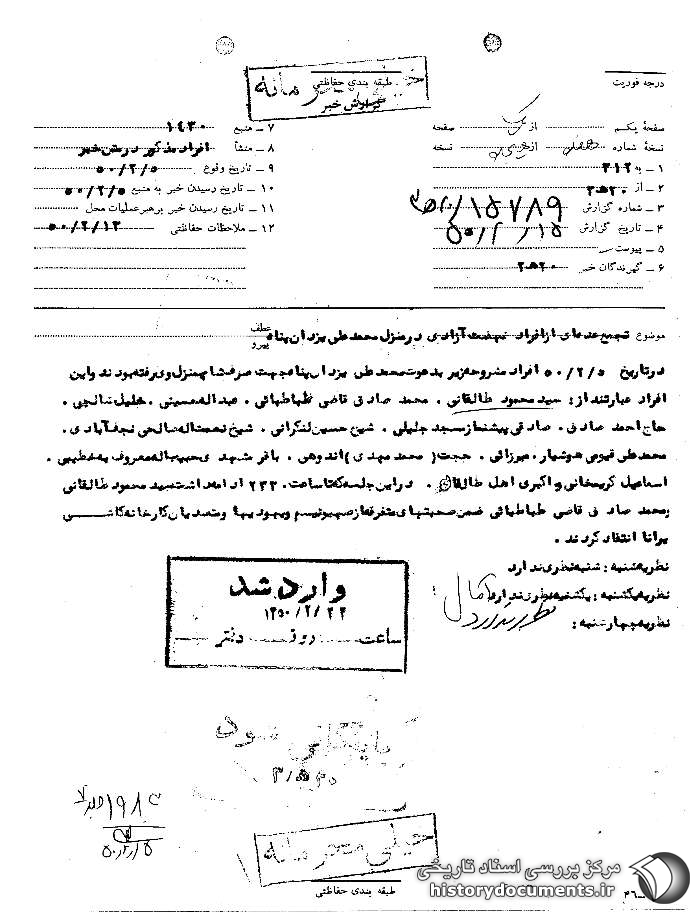 درجه فوریت
طبقه بندی حفاظتی
خیلی محرمانه
گزارش خبر
صفحهٔ یکم از یک صفحه
نسخهٔ شماره از نسخه
۱ ـ به ۳۱۲
۲ ـ از ۲۰ﻫ۳
۳ ـ شماره گزارش ۱۵۷۸۹/
۴ ـ تاریخ گزارش ۵۰/۲/۱۵
۵ ـ پیوست
۶ ـ گیرندگان خبر ۲۰ﻫ۳
۷ ـ منبع ۱۴۳۰
۸ ـ منشأ افراد مذکور در متن خبر
۹ ـ تاریخ وقوع ۵۰/۲/۵
۱۰ ـ تاریخ رسیدن خبر به منبع ۵۰/۲/۵
۱۱ ـ تاریخ رسیدن خبر برهبر عملیات محل
۱۲ ـ ملاحظات حفاظتی ۵۰/۲/۱۳
موضوع تجمع عده‌ای از افراد نهضت آزادی در منزل محمد علی یزدان پناه
عطف
پیرو
در تاریخ ۵۰/۲/۵ افراد مشروحه زیر بدعوت محمد علی یزدان پناه جهت صرف شام بمنزل وی رفته بودند و این
افراد عبارتند از: سید محمود طالقانی ، محمد صادق قاضی طباطبائی ، عبداله حسینی ، خلیل صالحی ،
حاج احمد صادق ، صادقی پیشنماز مسجد جلیلی ، شیخ حسین لنکرانی ، شیخ نعمت‌اله صالحی نجف‌آبادی ،
محمد علی قیومی هوشیار ، میرزائی ، حجت ( محمد مهدی ) اندوهی ، باقر مشهدی حبیب‌اله معروف به عظیمی ،
اسماعیل کریمخانی و اکبری اهل طالقان ، در این جلسه که تا ساعت ۲۳۳۰ ادامه داشت سید محمود طالقانی
و محمد صادق قاضی طباطبائی ضمن صحبتهای متفرقه از صهیونیسم و یهودیها و متصدیان کارخانه کاشی
برانا انتقاد کردند .
نظریه شنبه : شنبه نظری ندارد
نظریه یکشنبه : یکشنبه نظری ندارد
نظریه چهارشنبه : نظری ندارد
وارد شد
۱۳۵۰/۲/۲۲
ساعت روز دفتر
بایگانی شود
خیلی محرمانه
طبقه بندی حفاظتی
مرکز بررسی اسناد تاریخی
historydocuments.ir